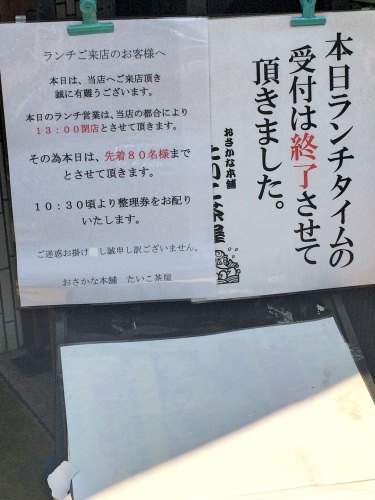 ランチご来店のお客様へ
本日は、当店へご来店頂き
誠に有難うございます。
本日のランチ営業は、当店の都合により
13:00閉店とさせて頂きます。
その為本日は、先着80名様まで
とさせて頂きます。
10:30頃より整理券をお配り
いたします。
ご迷惑お掛け し誠申し訳ございません。
おさかな本舗 たいこ茶屋
本日ランチタイムの
受付は終了させて
頂きました。
おさかな本舗
たいこ茶屋